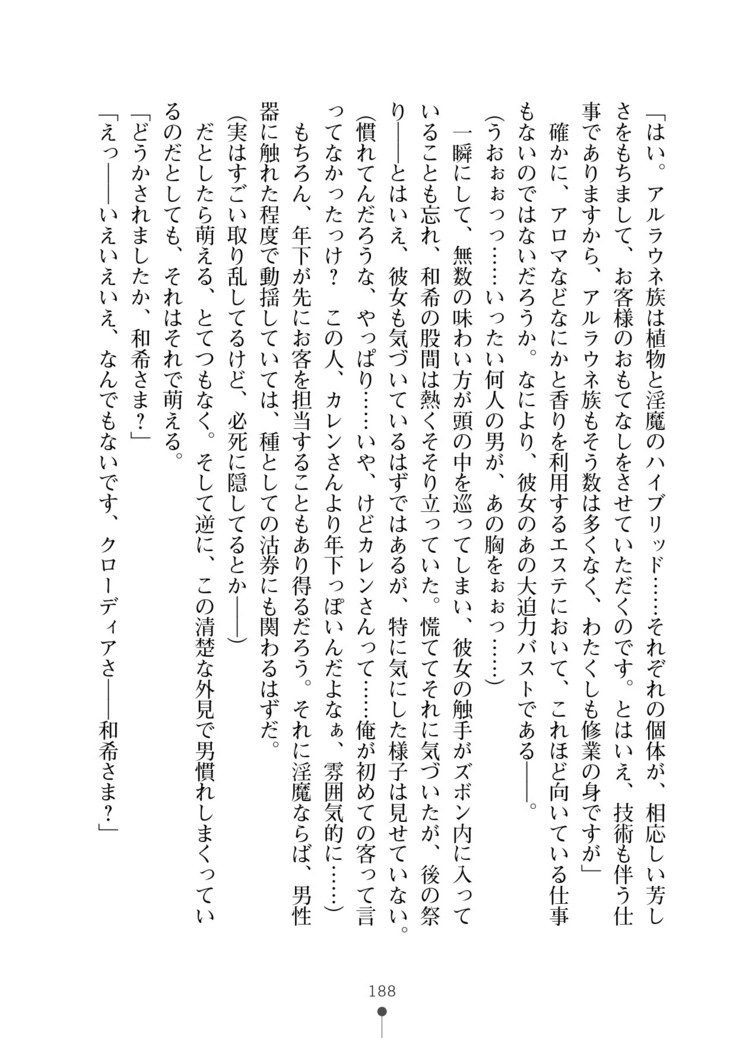 「はい。アルラウネ族は植物と淫魔のハイブリッド……それぞれの個体が、相応しい芳し
さをもちまして、お客様のおもてなしをさせていただくのです。とはいえ、技術も伴う仕
事でありますから、アルラウネ族もそう数は多くなく、わたくしも修業の身ですが」
　確かに、アロマなどなにかと香りを利用するエステにおいて、これほど向いている仕事
もないのではないだろうか。なにより、彼女のあの大迫力バストである――。
（うおぉぉっっ……いったい何人の男が、あの胸をぉぉっ……）
　一瞬にして、無数の味わい方が頭の中を巡ってしまい、彼女の触手がズボン内に入って
いることも忘れ、和希の股間は熱くそそり立っていた。慌ててそれに気づいたが、後の祭
り――とはいえ、彼女も気づいているはずではあるが、特に気にした様子は見せていない。
（慣れてんだろうな、やっぱり……いや、けどカレンさんって……俺が初めての客って言
ってなかったっけ？　この人、カレンさんより年下っぽいんだよなぁ、雰囲気的に……）
　もちろん、年下が先にお客を担当することもあり得るだろう。それに淫魔ならば、男性
器に触れた程度で動揺していては、種としての沽券にも関わるはずだ。
（実はすごい取り乱してるけど、必死に隠してるとか――）
　だとしたら萌える、とてつもなく。そして逆に、この清楚な外見で男慣れしまくってい
るのだとしても、それはそれで萌える。
「どうかされましたか、和希さま？」
「えっ――いえいえいえ、なんでもないです、クローディアさ――和希さま？」
188